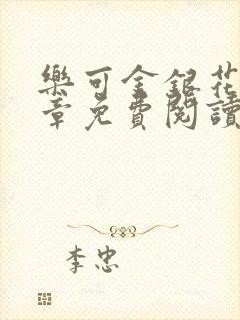 樂可金銀花
章免費閱讀
李忠